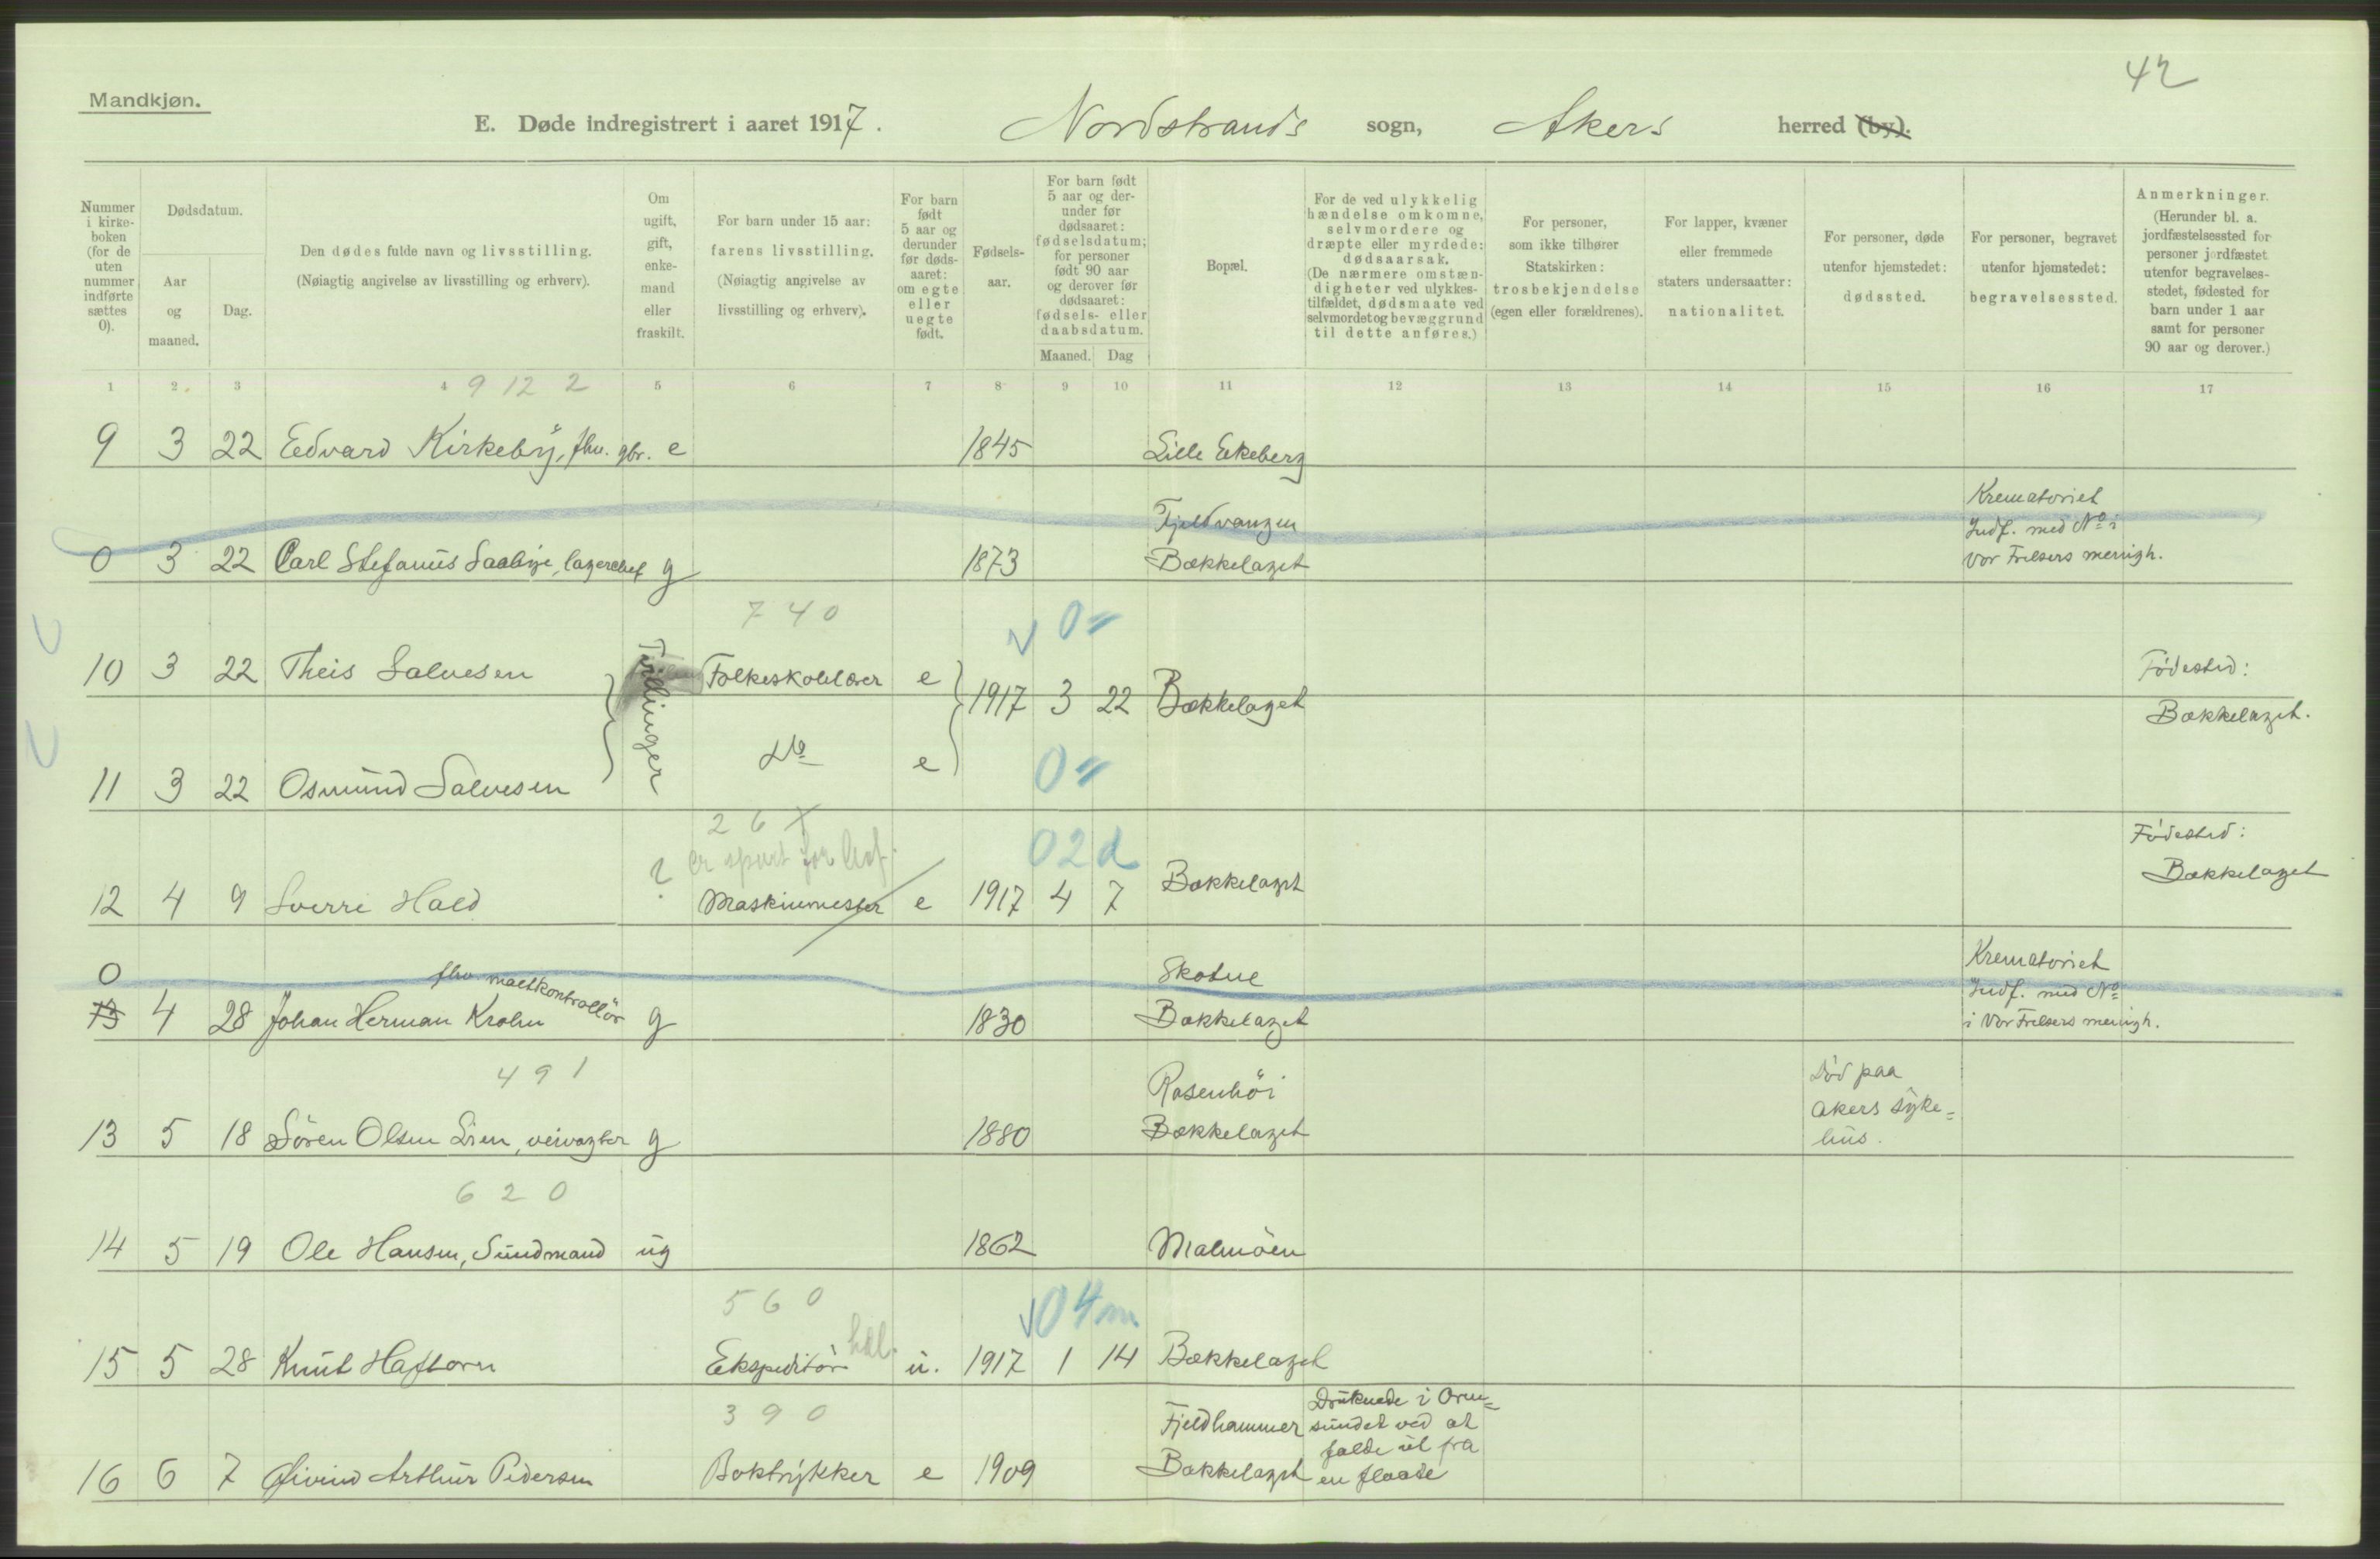 42
Mandkjøn.
E. Døde indregistrert i aaret 1917. Nordstrands sogn, Akers herred (by).
Nummer i kirkeboken (for de uten nummer indførte sættes 0).
Dødsdatum.
Aar og maaned.
Dag.
Den dødes fulde navn og livsstilling.
(Nøiagtig angivelse av livsstilling og erhverv).
Om ugift, gift, enkemand eller fraskilt.
For barn under 15 aar: farens livsstilling.
(Nøiagtig angivelse av livsstilling og erhverv).
For barn født 5 aar og derunder før dødsaaret: om egte eller uegte født.
Fødselsaar.
For barn født 5 aar og derunder før dødsaaret: fødselsdatum; for personer født 90 aar og derover før dødsaaret: fødsels- eller daabsdatum.
Maaned. Dag
Bopæl.
For de ved ulykkelig hændelse omkomne, selvmordere og dræpte eller myrdede: dødsaarsak.
(De nærmere omstændigheter ved ulykkestilfældet, dødsmaate ved selvmordet og bevæggrund til dette anføres.)
For personer, som ikke tilhører Statskirken: trosbekjendelse (egen eller forældrenes).
For lapper, kvæner eller fremmede staters undersaatter: nationalitet.
For personer, døde utenfor hjemstedet: dødssted.
For personer, begravet utenfor hjemstedet: begravelsessted.
Anmerkninger.
(Herunder bl. a. jordfæstelsessted for personer jordfæstet utenfor begravelsesstedet, fødested for barn under 1 aar samt for personer 90 aar og derover.)
1 2 3 4 5 6 7 8 9 10 11 12 13 14 15 16 17
9 12 2
9 3 22 Edvard Kirkebÿ, fhv. gbr. e 1845 Lille Ekeberg
Fjeldvangen Krematoriet
Indf. med No i
0 3 22 Carl Stefanus Saabye, lagerchef g 1873 Bækkelaget Vor Frelsers menigh.
7 4 0 0
10 3 22 Theis Salvesen Tvillinger Folkeskolelærer e 1917 3 22 Bækkelaget Fødested:
Bækkelaget.
11 3 22 Osmund Salvesen Do e 0
2 6 X
er spurt for 02d Fødested:
12 4 9 Sverre Hald ? Maskinmester e 1917 4 7 Bækkelaget Bækkelaget
0 fhv. maltkontrollör Skotne Krematoriet
Indf. med No
13 4 28 Johan Herman Krohn g 1830 Bækkelaget i Vor Frelsers menigh.
4 9 1 Rosenhöi Död paa
Akers syke=
13 5 18 Sören Olsen Lien, veivogter g 1880 Bækkelaget hus.
6 2 0
14 5 19 Ole Hansen, Sundmand ug 1862 Malmöen
5 6 0 04m
15 5 28 Knut Haftorn Ekspeditör hdl. u. 1917 1 14 Bækkelaget
3 9 0 Fjeldhammer Druknede i Orm=
sundet ved at
falde ut fra
16 6 7 Øivind Arthur Pedersen Boktrykker e 1909 Bækkelaget en flaade